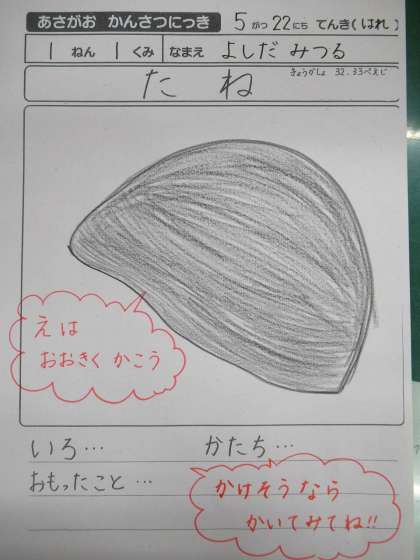 あさがお かんさつにっき 5がつ22にち てんき(はれ)
1ねん 1くみ なまえ よしだ みつる
たね きょうかしょ 32.33ぺえじ
えは
おおきく かこう
いろ… かたち…
おもったこと…
かけそうなら
かいてみてね!!